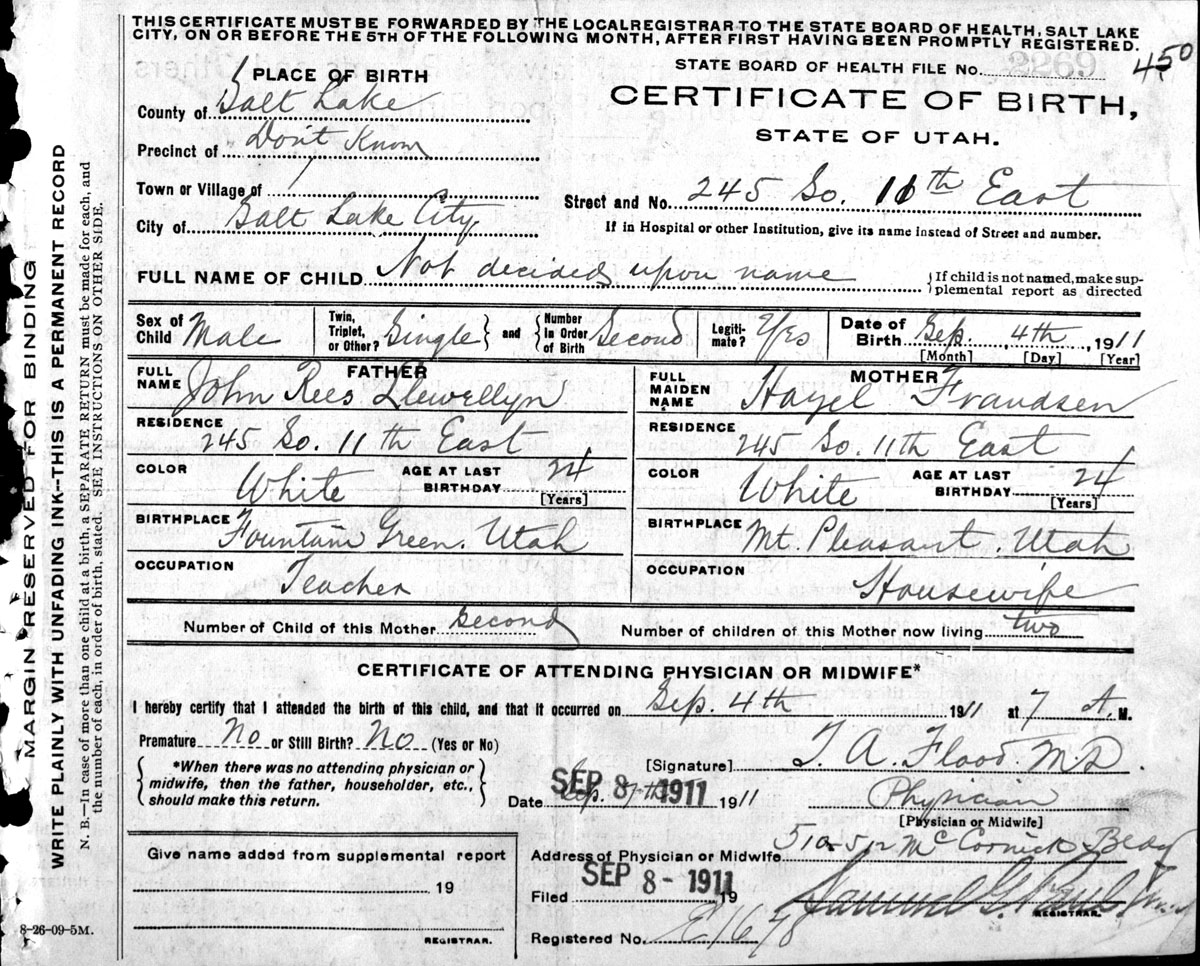 THIS CERTIFICATE MUST BE FORWARDED BY THE LOCAL REGISTRAR TO THE STATE BOARD OF HEALTH, SALT LAKE
CITY, ON OR BEFORE THE 5TH OF THE FOLLOWING MONTH, AFTER FIRST HAVING BEEN PROMPTLY REGISTERED.
STATE BOARD OF HEALTH FILE No. 450
PLACE OF BIRTH
CERTIFICATE OF BIRTH,
STATE OF UTAH.
County of Salt Lake
Precinct of Don't Know
Town or Village of
Street and No. 245 So. 11th East
City of Salt Lake City
If in Hospital or other Institution, give its name instead of Street and number.
FULL NAME OF CHILD Not decided upon name
If child is not named, make sup-
plemental report as directed
Sex of Child Male
Twin, Triplet, or Other? Single and Number In Order of Birth Second
Legiti-mate? Yes
Date of Birth Sep. 4th, 1911
[Month] [Day] [Year]
FATHER
FULL NAME John Rees Llewellyn
RESIDENCE 245 So. 11th East
COLOR White AGE AT LAST BIRTHDAY 24 [Years]
BIRTHPLACE Fountain Green. Utah
OCCUPATION Teacher
MOTHER
FULL MAIDEN NAME Hazel Frandsen
RESIDENCE 245 So. 11th East
COLOR White AGE AT LAST BIRTHDAY 24 [Years]
BIRTHPLACE Mt. Pleasant. Utah
OCCUPATION Housewife
Number of Child of this Mother second
Number of children of this Mother now living two
CERTIFICATE OF ATTENDING PHYSICIAN OR MIDWIFE*
I hereby certify that I attended the birth of this child, and that it occurred on Sep. 4th 1911 at 7 A. M.
Premature No or Still Birth? No (Yes or No)
*When there was no attending physician or
midwife, then the father, householder, etc.,
should make this return.
[Signature] T. A. Flood M.D.
Date SEP 8 - 1911 1911
Physician
[Physician or Midwife]
Give name added from supplemental report
19
REGISTRAR.
Address of Physician or Midwife 510-512 McCornick Bldg
Filed SEP 8 - 1911 19
Samuel G. Paul
REGISTRAR.
Registered No. E1678
8-26-09-5M.
MARGIN RESERVED FOR BINDING
WRITE PLAINLY WITH UNFADING INK--THIS IS A PERMANENT RECORD
N. B.—In case of more than one child at a birth, a SEPARATE RETURN must be made for each, and
the number of each, in order of birth, stated. SEE INSTRUCTIONS ON OTHER SIDE.